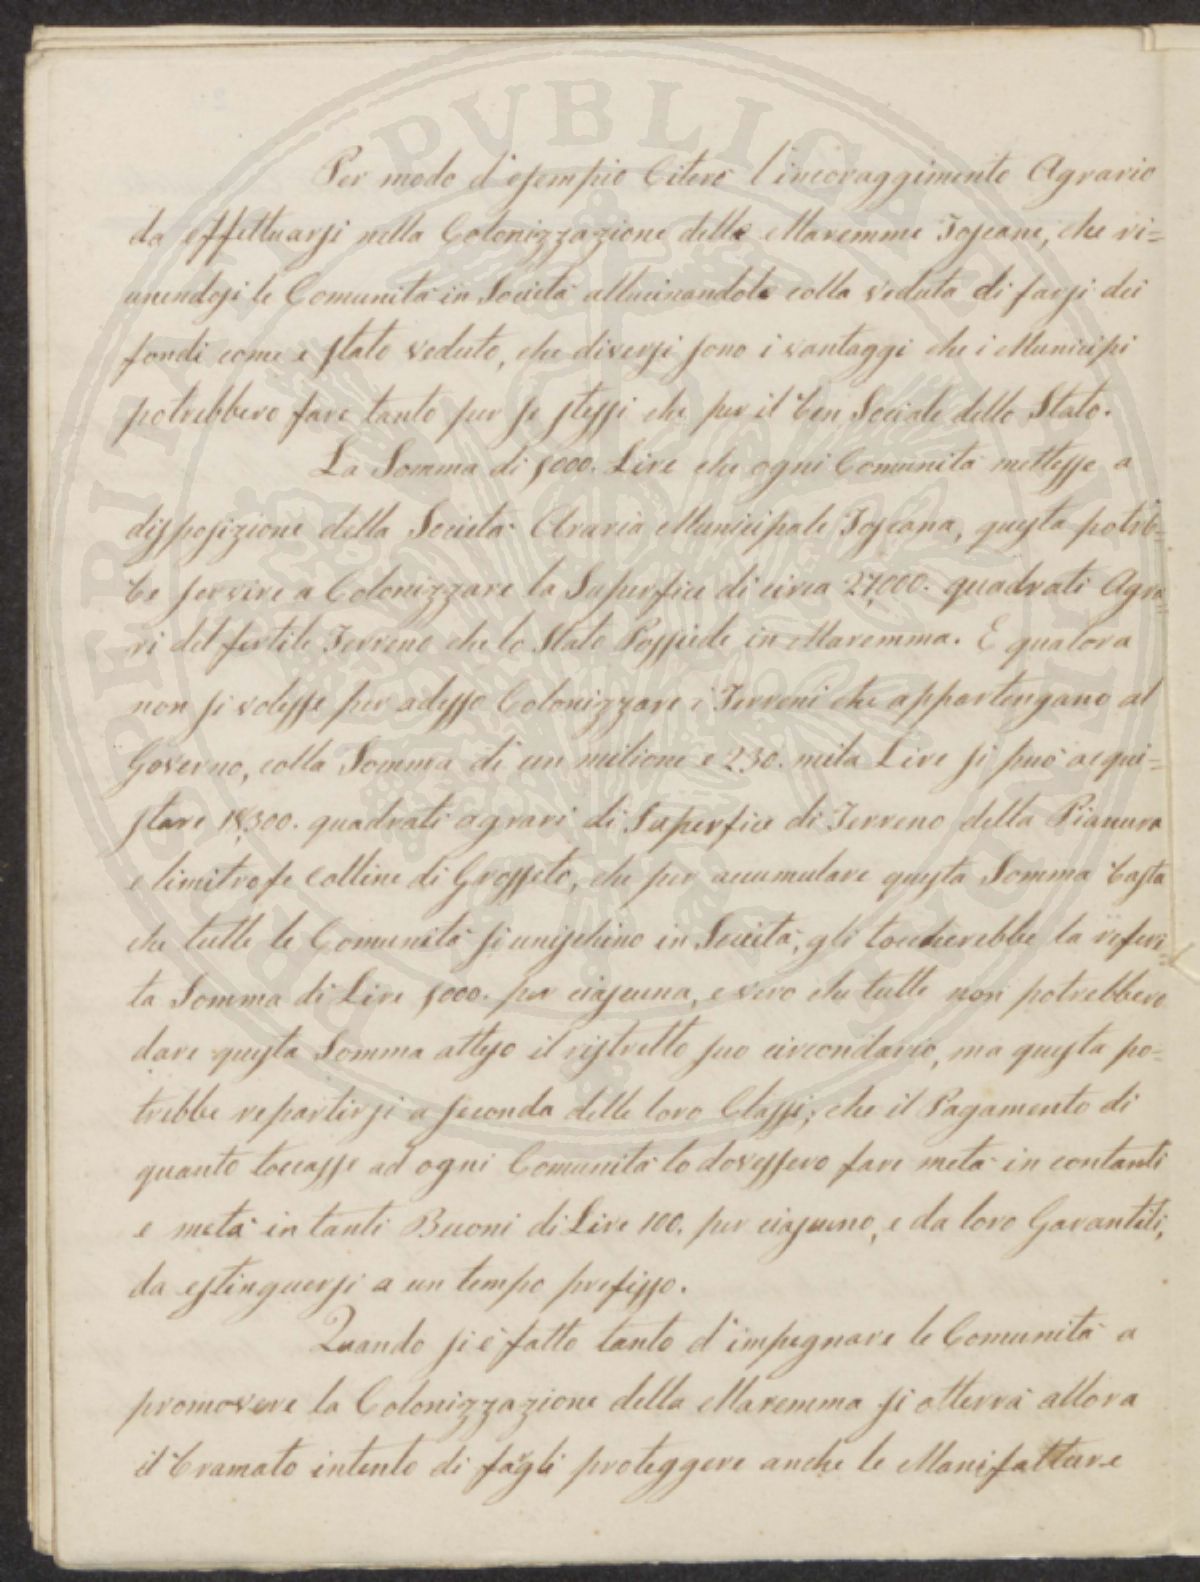 Per modo d'esempio Citerò l'incoraggimento Agrario
da effettuarsi nella Colonizzazione delle Maremme Toscane, che ri=
unendosi le Comunità in Società allucinandole colla veduta di farsi dei
fondi come è stato veduto, che diversi sono i vantaggi che i Municipi
potrebbero fare tanto per se stessi che per il ben Sociale dello Stato.
La Somma di 5000. Lire che ogni Comunità mettesse a
disposizione della Società Agraria Municipale Toscana, questa potreb=
be servire a Colonizzare la Superficie di circa 27,000. quadrati Agra=
ri del fertile Terreno che lo Stato Possiede in Maremma. E qualora
non si volesse per adesso Colonizzare i Terreni che appartengano al
Governo, colla Somma di un milione e 230. mila Lire si può acqui=
stare 18,300. quadrati agrari di Superfice di Terreno della Pianura
e limitrofe colline di Grosseto, che per accumulare questa Somma basta
che tutte le Comunità si unischino in Società, gli toccherebbe la riferi=
ta Somma di Lire 5000. per ciascuna, e vero che tutte non potrebbero
dare questa Somma atteso il ristretto suo circondario, ma questa po=
trebbe repartirsi a seconda delle loro Classi; che il Pagamento di
quanto toccasse ad ogni Comunità lo dovessero fare metà in contanti
e metà in tanti Buoni di Lire 100. per ciascuno, e da loro Garantiti,
da estinguersi a un tempo prefisso.
Quando si è fatto tanto d'impegnare le Comunità a
promovere la Colonizzazione della Maremma si otterrà allora
il bramato intento di fargli proteggere anche le Manifatture